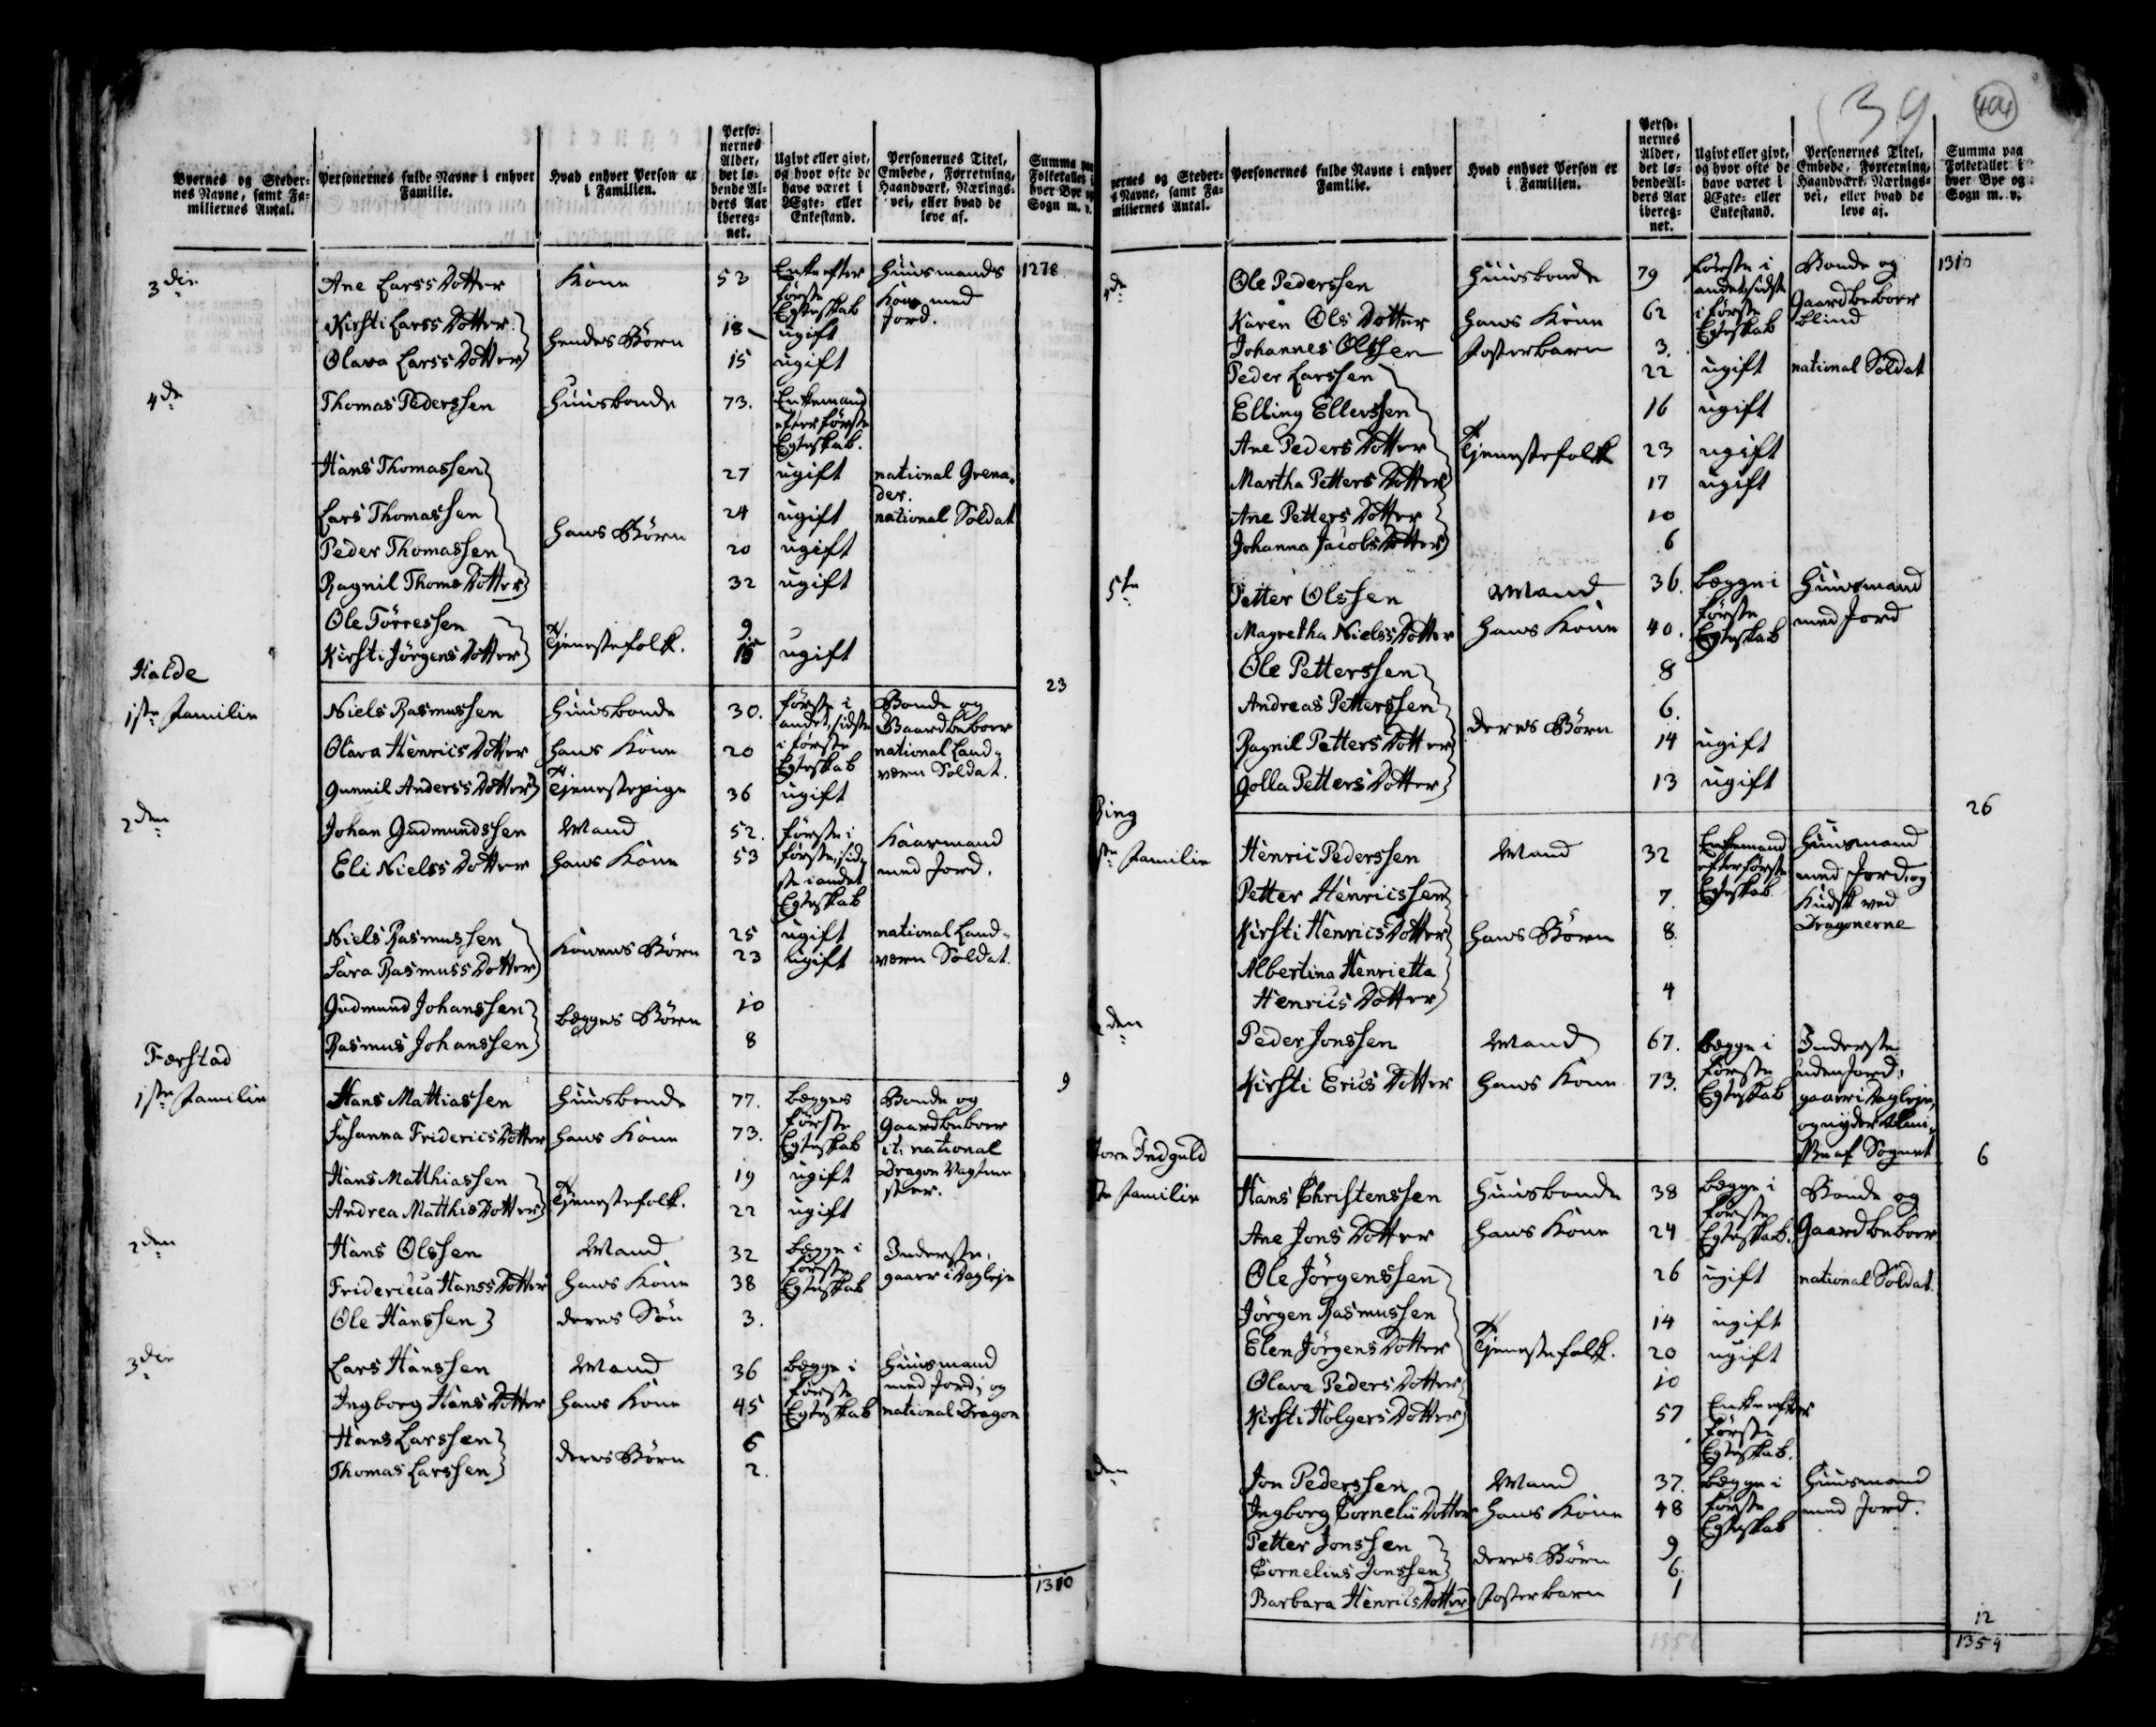 Byernes og Steder-
nes Navne, samt Fa-
miliernes Antal.
Personernes fulde Navne i enhver
Familie.
Hvad enhver Person er
i Familien.
Perso-
nernes
Alder,
det lø-
bende Al-
ders Aar
ibereg-
net.
Ugivt eller givt,
og hvor ofte de
have været i
Ægte- eller
Enkestand.
Personernes Titel,
Embede, Forretning,
Haandværk, Nærings-
vei, eller hvad de
leve af.
Summa
Folketallet
hver Bye
Sogn m.
3die Ane Larss Dotter Kone 53 Enke efter første Egteskab Huusmands Kone med Jord. 1278
Kirsti Larss Dotter hendes Børn 18 ugift
Olava Larss Dotter 15 ugift
4de Thomas Pederssen Huusbonde 73. Enkemand efter første Egteskab.
Hans Thomassen 27 ugift national Grena-
der.
Lars Thomassen hans Børn 24 ugift national Soldat
Peder Thomassen 20 ugift
Ragnil Thoms Dotter 32 ugift
Ole Torressen Tjenestefolk. 9
Kirsti Jörgens Dotter 15 ugift
23
Halde
1ste Familie Niels Rasmussen Huusbonde 30. første i andet, sidste i første Egteskab Bonde og Gaardbeboer national Land-
værn Soldat.
Olava Henrics Dotter hans Kone 20
Gunnil Anderss Dotter Tjenestepige 36 ugift
2den Johan Gudmundssen Mand 52. første i første, sid-
ste i andet Egteskab Kaarmand med Jord.
Eli Nielss Dotter hans Kone 53
Niels Rasmussen Konens Børn 25 ugift national Land-
værn Soldat.
Sara Rasmuss Dotter 23 ugift
Gudmund Johanssen begges Børn 10
Rasmus Johanssen 8
9
Færstad
1ste Familie Hans Mattiassen Huusbonde 77. begges første Egteskab Bonde og Gaardbeboer it: national Dragon Vagtme-
ster.
Susanna Friderics Dotter hans Kone 73.
Hans Matthiassen Tjenestefolk. 19 ugift
Andrea Matthis Dotter 22 ugift
2den Hans Olssen Mand 32 begge i første Egteskab Inderste, gaaer i Dagleje
Fridericca Hanss Dotter hans Kone 38
Ole Hanssen deres Søn 3.
3die Lars Hanssen Mand 36 begge i første Egteskab Huusmand med Jord, og national Dragon
Ingborg Hans Dotter hans Kone 45
Hans Larssen deres Børn 6
Thomas Larssen 2.
1310
39 404
ernes og Steder-
s Navne, samt Fa-
miliernes Antal.
Personernes fulde Navne i enhver
Familie.
Hvad enhver Person er
i Familien.
Perso-
nernes
Alder,
det lø-
bende Al-
ders Aar
ibereg-
net.
Ugivt eller givt,
og hvor ofte de
have været i
Ægte- eller
Enkestand.
Personernes Titel,
Embede, Forretning,
Haandværk, Nærings-
vei, eller hvad de
leve af.
Summa paa
Folketallet i
hver Bye og
Sogn m. v.
4de Ole Pederssen Huusbonde 79 første i andet, sidste i første Egteskab Bonde og Gaardbeboer blind 1310
Karen Ols Dotter hans Kone 62
Johannes Olssen Fosterbarn 3.
Peder Larssen 22 ugift national Soldat
Elling Ellerssen 16 ugift
Ane Peders Dotter Tjenestefolk 23 ugift
Martha Petters Dotter 17 ugift
Ane Petters Dotter 10
Johanna Jacobs Dotter 6
5te Petter Olssen Mand 36. begge i første Egteskab Huusmand med Jord
Magretha Nielss Dotter hans Kone 40.
Ole Petterssen 8
Andreas Petterssen deres Børn 6.
Ragnil Petters Dotter 14 ugift
Golla Petters Dotter 13 ugift
26
Ring
ste Familie Henric Pederssen Mand 32 Enkemand efter første Egteskab Huusmand med Jord, og Kudsk ved Dragonerne
Petter Henricssen 7.
Kirsti Henrics Dotter hans Børn 8.
Albertina Henrietta
Henrics Dotter 4
den Peder Jonssen Mand 67. begge i første Egteskab Inderste uden Jord, gaaer i Dagleje, og nyder af Sognet
Kirsti Erics Dotter hans Kone 73.
6
Indguld
ste Familie Hans Christenssen Huusbonde 38 begge i første Egteskab. Bonde og Gaardbeboer
Ane Jons Dotter hans Kone 24
Ole Jörgenssen 26 ugift national Soldat.
Jörgen Rasmussen 14 ugift
Elen Jörgens Dotter Tjenestefolk. 20 ugift
Olava Peders Dotter 10
Kirsti Holgers Dotter 57 Enke efter første Egteskab.
den Jon Pederssen Mand 37. begge i første Egteskab Huusmand med Jord.
Ingborg Cornelii Dotter hans Kone 48
Petter Jonssen deres Børn 9
Cornelius Jonssen 6.
Barbara Henrics Dotter Fosterbarn 1
12
1354